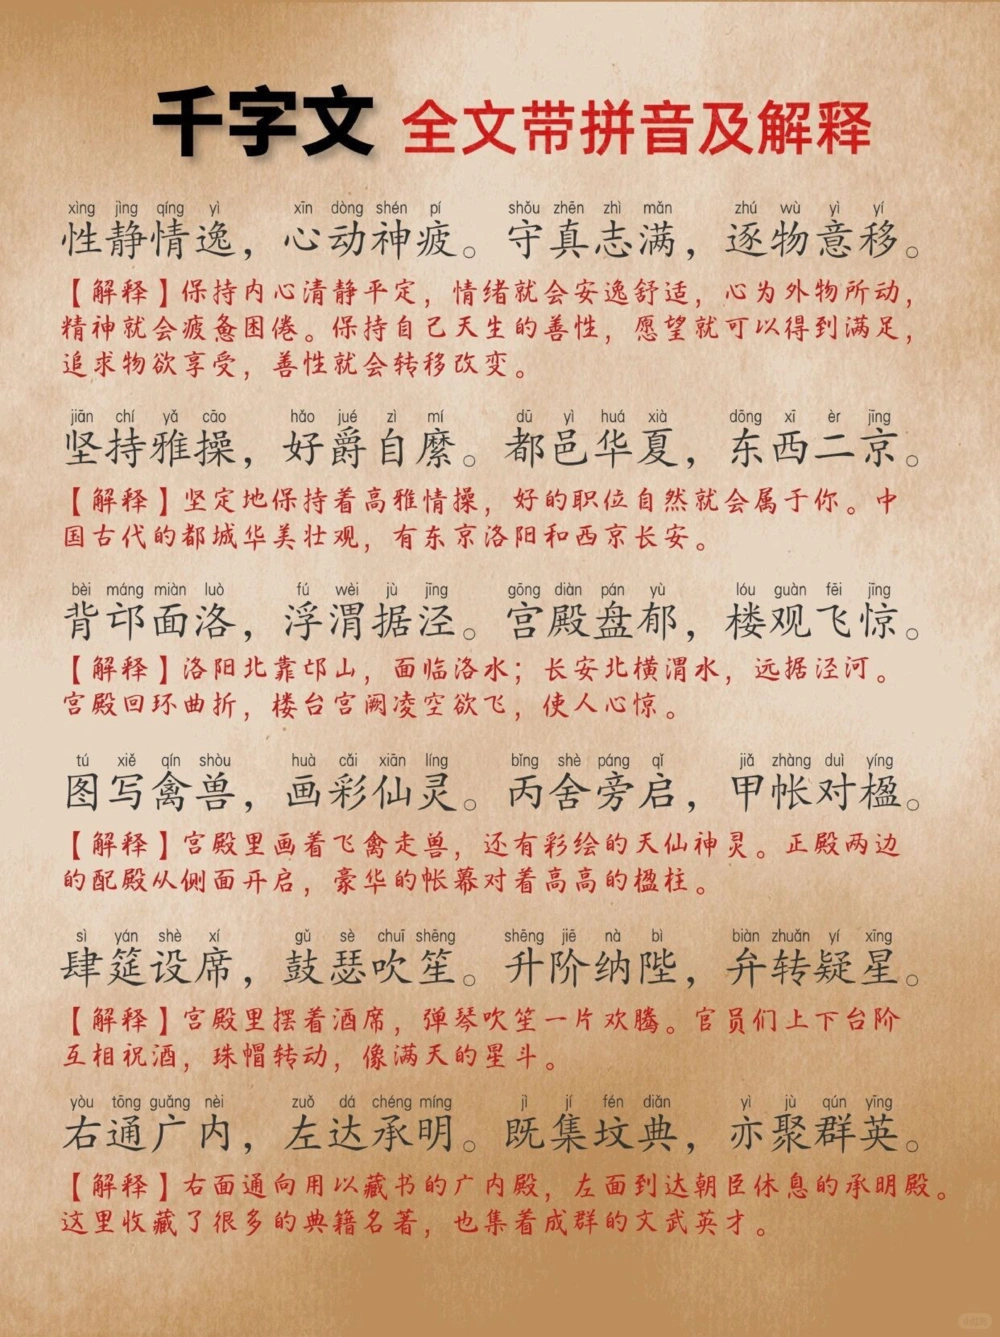 千字文 全文带拼音及解释
xìng jìng qíng yì xīn dòng shén pí shǒu zhēn zhì mǎn zhú wù yì yí
性静情逸，心动神疲。守真志满，逐物意移。
【解释】保持内心清静平定，情绪就会安逸舒适，心为外物所动，
精神就会疲惫困倦。保持自己天生的善性，愿望就可以得到满足，
追求物欲享受，善性就会转移改变。
jiān chí yǎ cāo hǎo jué zì mí dū yì huá xià dōng xī èr jīng
坚持雅操，好爵自縻。都邑华夏，东西二京。
【解释】坚定地保持着高雅情操，好的职位自然就会属于你。中
国古代的都城华美壮观，有东京洛阳和西京长安。
bèi máng miàn luò fú wèi jù jīng gōng diàn pán yù lóu guàn fēi jīng
背邙面洛，浮渭据泾。宫殿盘郁，楼观飞惊。
【解释】洛阳北靠邙山，面临洛水；长安北横渭水，远据泾河。
宫殿回环曲折，楼台宫阙凌空欲飞，使人心惊。
tú xiě qín shòu huà cǎi xiān líng bǐng shè páng qǐ jiǎ zhàng duì yíng
图写禽兽，画彩仙灵。丙舍旁启，甲帐对楹。
【解释】宫殿里画着飞禽走兽，还有彩绘的天仙神灵。正殿两边
的配殿从侧面开启，豪华的帐幕对着高高的楹柱。
sì yán shè xí gǔ sè chuī shēng shēng jiē nà bì biàn zhuǎn yí xīng
肆筵设席，鼓瑟吹笙。升阶纳陛，弁转疑星。
【解释】宫殿里摆着酒席，弹琴吹笙一片欢腾。官员们上下台阶
互相祝酒，珠帽转动，像满天的星斗。
yòu tōng guǎng nèi zuǒ dá chéng míng jì jí fén diǎn yì jù qún yīng
右通广内，左达承明。既集坟典，亦聚群英。
【解释】右面通向用以藏书的广内殿，左面到达朝臣休息的承明殿。
这里收藏了很多的典籍名著，也集着成群的文武英才。